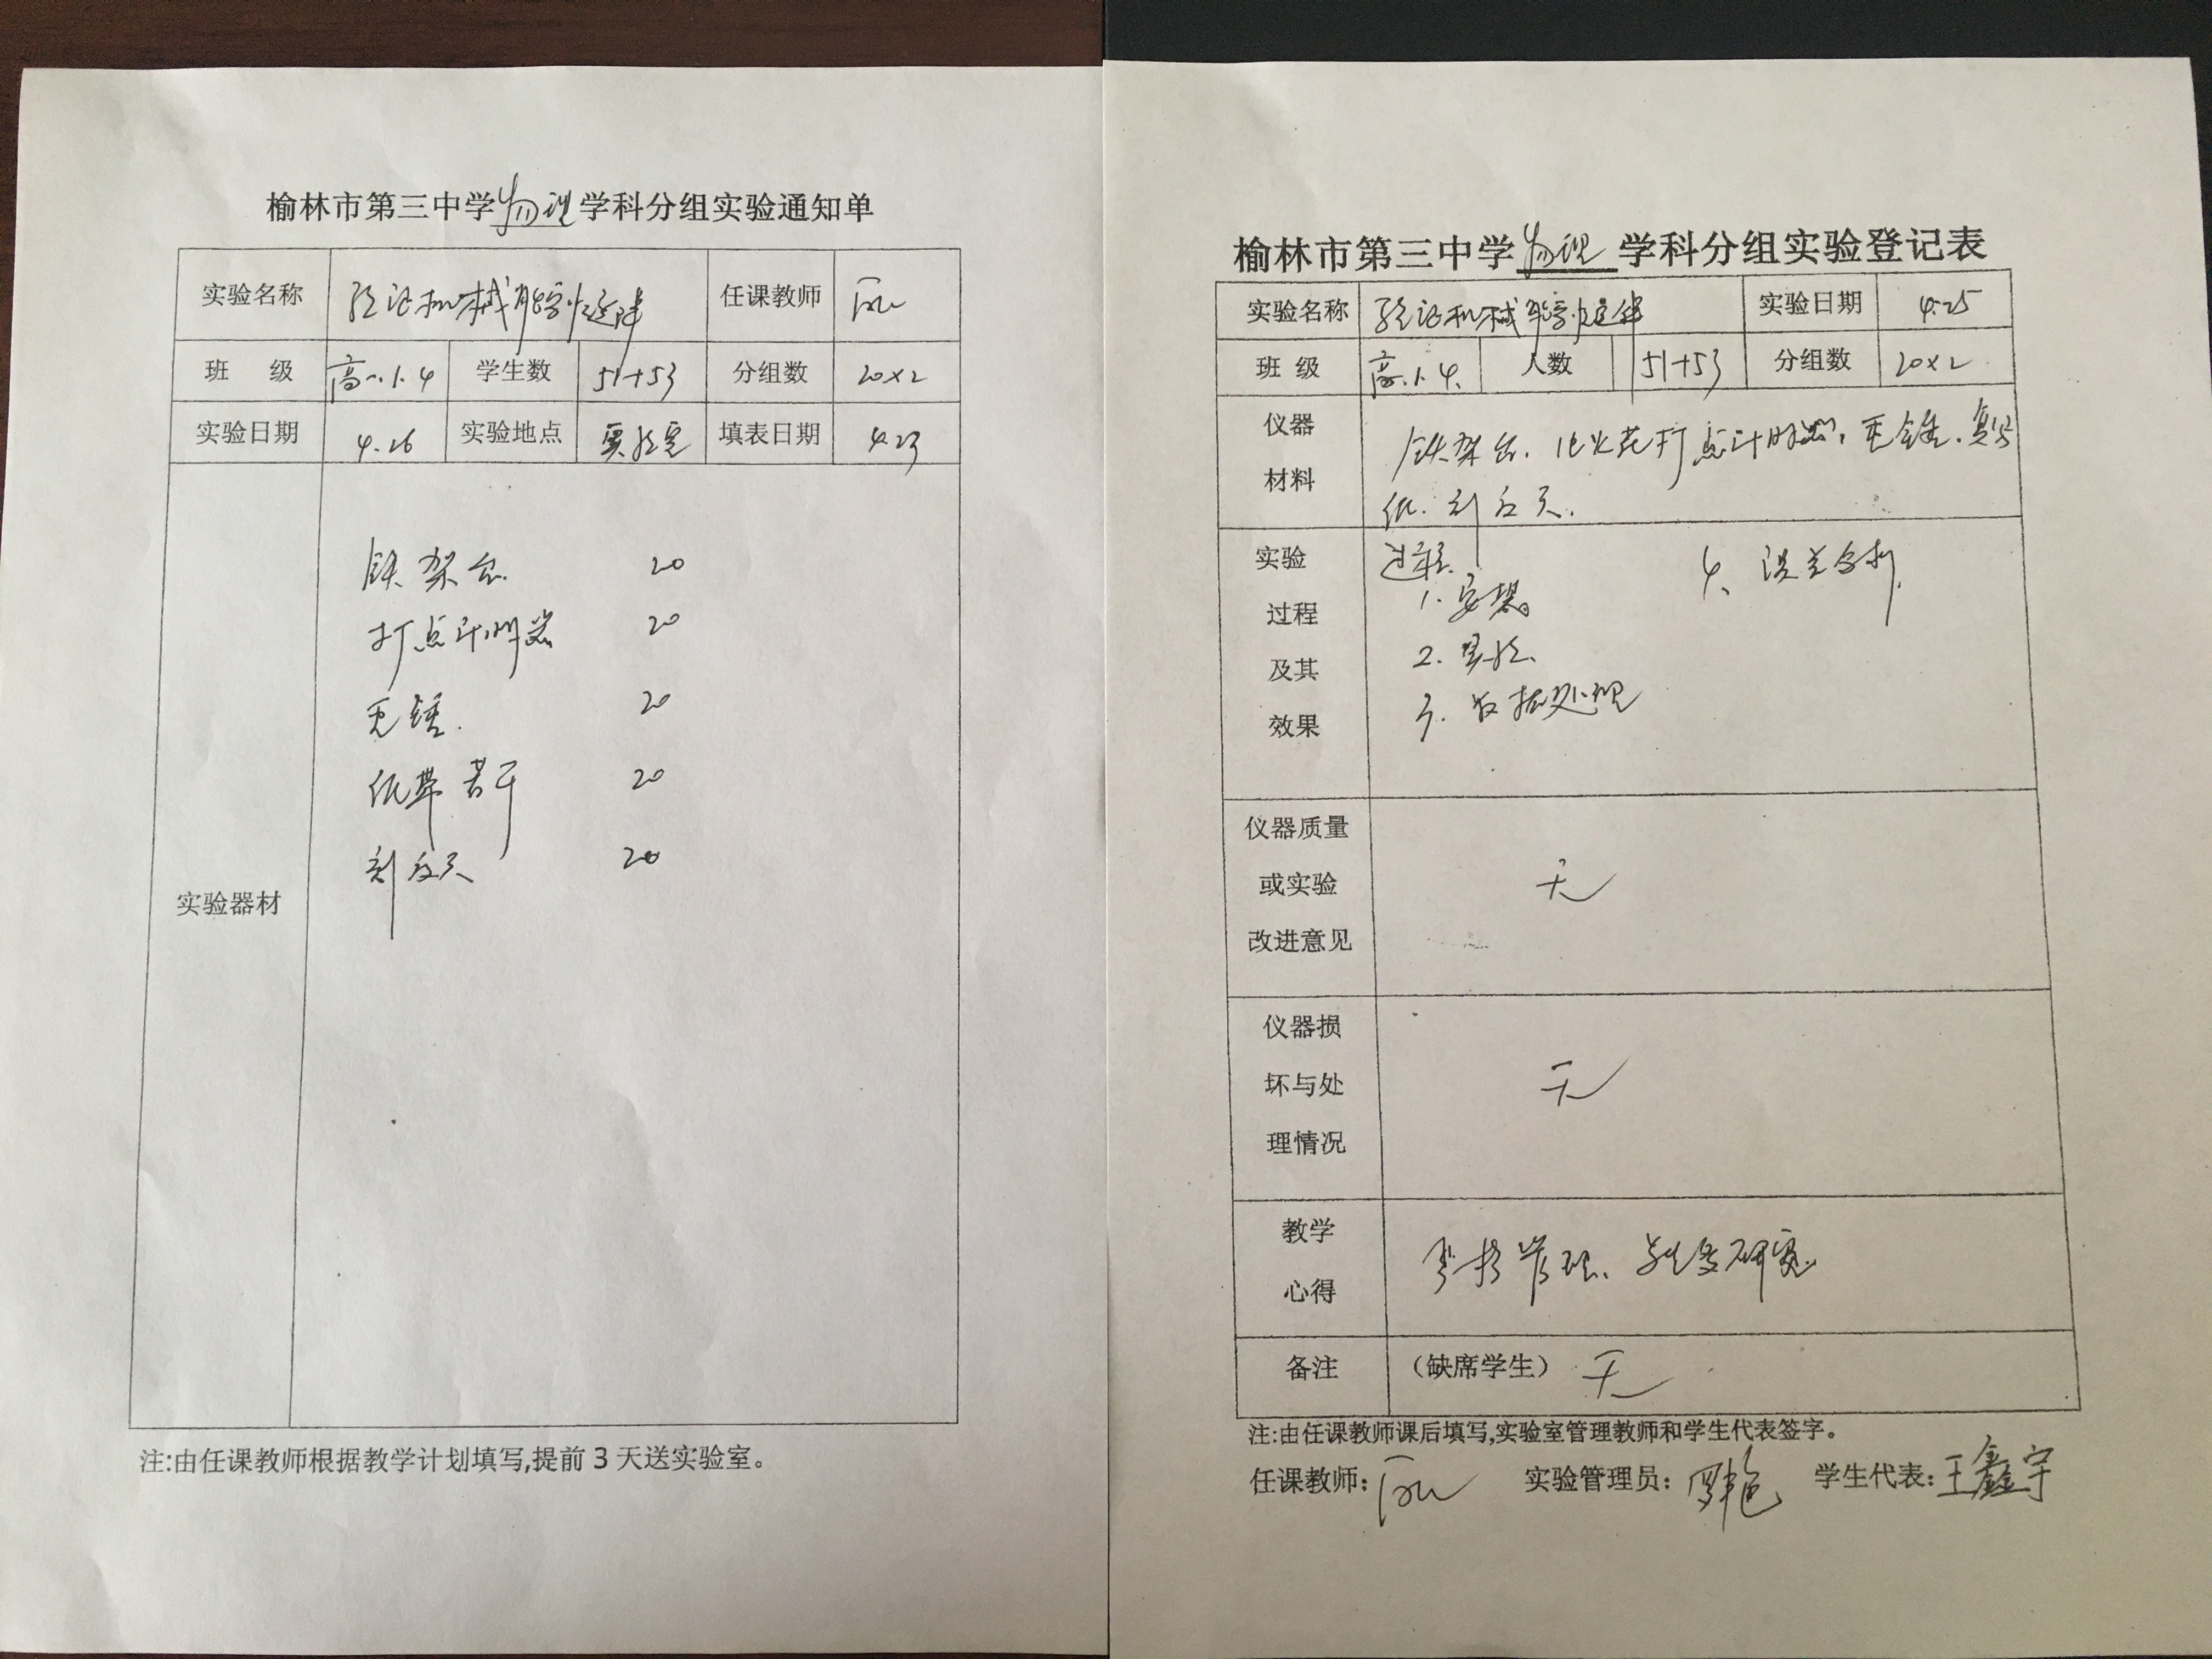 榆林市第三中学物理学科分组实验通知单
实验名称 验证机械能守恒定律 任课教师
班 级 高一.1.4 学生数 51+53 分组数 20×2
实验日期 4.26 实验地点 实验室 填表日期 4.23
实验器材
铁架台 20
打点计时器 20
重锤. 20
纸带若干 20
刻度尺 20
注:由任课教师根据教学计划填写,提前3天送实验室。
榆林市第三中学物理学科分组实验登记表
实验名称 验证机械能守恒定律 实验日期 4.25
班 级 高一.1.4. 人数 51+53 分组数 20×2
仪器材料
铁架台. 电火花打点计时器, 重锤. 复写
纸. 刻度尺.
实验过程及其效果
过程. 4、误差分析.
1. 安装。
2. 实验.
3. 数据处理
仪器质量或实验改进意见 无
仪器损坏与处理情况 无
教学心得 管理、学生要研究.
备注 (缺席学生) 无
注:由任课教师课后填写,实验室管理教师和学生代表签字。
任课教师: 实验管理员: 罗艳 学生代表: 王鑫宇